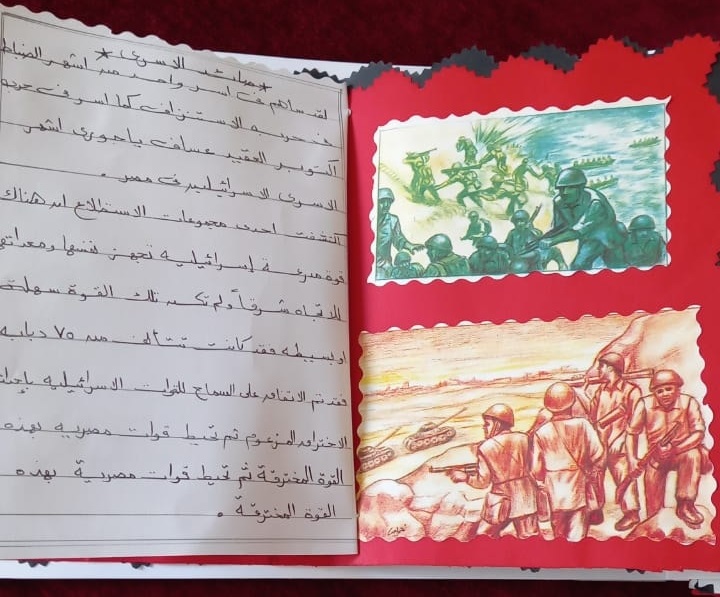 * صائد الاسرى *
لقد ساهم فى اسر واحد من اشهر الضباط
فى حرب الاستنزاف كما اسر فى حرب
أكتوبر العقيد عساف ياجورى اشهر
الاسرى الاسرائيليين فى مصر .
التقطت احدى مجموعات الاستطلاع ان هناك
قوة مدرعة إسرائيلية تجهز نفسها ومعداتها
للاتجاه شرقاً ولم تكن تلك القوة سهلة
او بسيطه فقد كانت تتألف من ٧٥ دبابه
فقد تم الاتفاق على السماح للقوات الاسرائيليه بإحداث
الاختراق المزعوم ثم تحيط قوات مصريه بهذه
القوة المخترقة ثم تحيط قوات مصرية بهذه
القوة المخترقة .